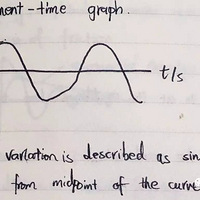 ment-time graph.
t/s
variation is described as sin
from midpoint of the curve